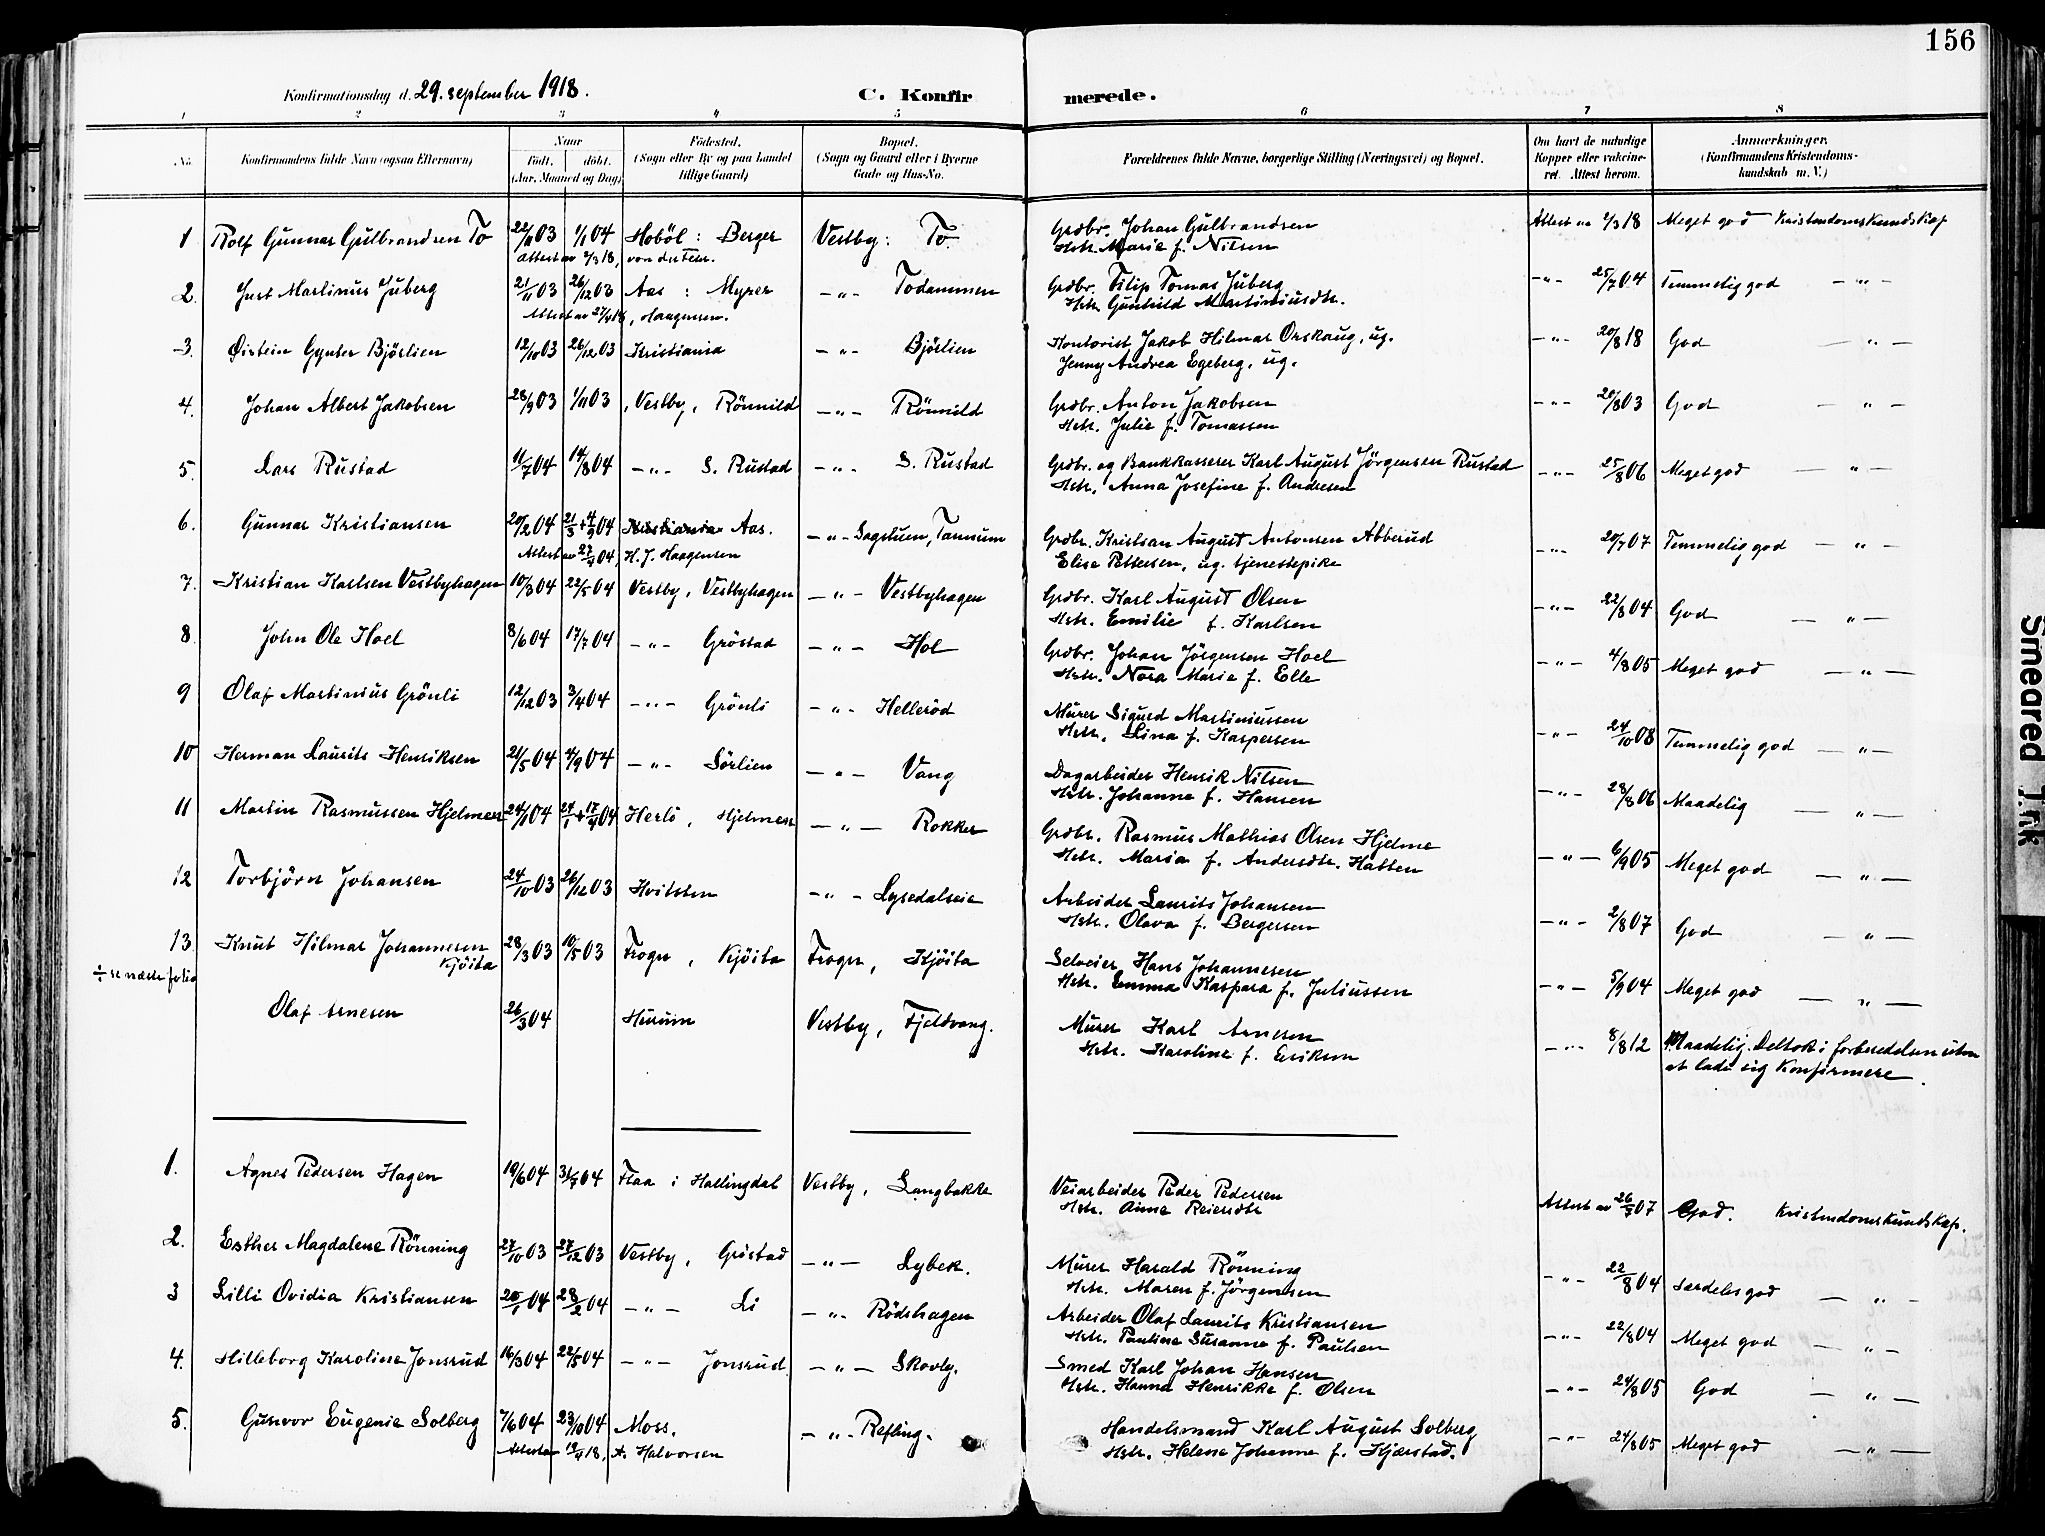 156
Konfirmationsdag d. 29. september 1918.
C. Konfir
merede.
1 2 3 4 5 6 7 8
No.
Konfirmandens fulde Navn (ogsaa Efternavn)
Naar
Født. døbt.
(Aar, Maaned og Dag)
Fødested.
(Sogn eller By og paa Landet tillige Gaard)
Bopæl.
(Sogn og Gaard eller i Byerne Gade og Hus-No.
Forældrenes fulde Navne, borgerlige Stilling (Næringsvei) og Bopæl.
Om havt de naturlige Kopper eller vakcineret. Attest herom.
Anmærkninger.
(Konfirmandens Kristendomskundskab m. V.)
1 Rolf Gunnar Gulbrandsen To 22/11 03 1/1 04 Hobøl : Berger Vestby : To Grdbr. Johan Gulbrandsen Attest av 1/3 18 Meget god Kristendomskundskap
Hstr. Marie f. Nilsen
2. Just Martinus Juberg 21/11 03 26/12 03 Aas : Myrer -"- Todammen Grdbr. Filip Tomas Juberg -"- 25/7 04 Temmelig god -"-
Attest av 27/4 18, Haagensen. Hstr. Gunhild Martiniusdtr.
3. Øistein Gynter Bjørlien 12/10 03 26/12 03 Kristiania -"- Bjørlien Kontorist Jakob Hilmar Orskaug, ug. -"- 20/8 18 God -"-
Jenny Andrea Egeberg, ug.
4. Johan Albert Jakobsen 28/9 03 1/11 03 Vestby, Rønnild -"- Rønnild Grdbr. Anton Jakobsen -"- 20/8 03 God -"-
Hstr. Julie f. Tomassen
5. Lars Rustad 11/7 04 14/8 04 -"- S. Rustad -"- S. Rustad Grdbr. og Bankkasserer Karl August Jørgensen Rustad -"- 25/8 06 Meget god -"-
Hstr. Anna Josefine f. Andresen
6. Gunnar Kristiansen 20/2 04 21/3 + 4/9 04 Kristiania Aas. -"- Sagstuen, Tannum Grdbr. Kristian August Antonsen Abberud -"- 20/7 07 Temmelig god -"-
Attest av 27/4 04, H. J. Haagensen Elise Pettersen, ug. tjenestepike
7. Kristian Karlsen Vestbyhagen 10/3 04 22/5 04 Vestby, Vestbyhagen -"- Vestbyhagen Grdbr. Karl August Olsen -"- 22/8 04 God -"-
Hstr. Emilie f. Karlsen
8. John Ole Hoel 8/6 04 17/7 04 -"- Grøstad -"- Hol Grdbr. Johan Jørgensen Hoel -"- 4/8 05 Meget god -"-
Hstr. Nora Marie f. Elle
9 Olaf Martinius Grønli 12/12 03 3/4 04 -"- Grønli -"- Hellerød Murer Sigurd Martiniussen -"- 24/10 08 Temmelig god -"-
Hstr. Lina f. Kaspersen
10 Herman Laurits Henriksen 21/5 04 4/9 04 -"- Sørlien -"- Vang Dagarbeider Henrik Nilsen -"- 28/8 06 Maadelig -"-
Hstr. Johanne f. Hansen
11 Martin Rasmussen Hjelmen 24/1 04 24/1 + 17/4 04 Herlø, Hjelmen -"- Rokker Grdbr. Rasmus Mathias Olsen Hjelme -"- 6/9 05 Meget god -"-
Hstr. Maria f. Andersdtr. Hatten
12 Torbjørn Johansen 24/10 03 26/12 03 Hvitsten -"- Lysedalseie Arbeider Laurits Johansen -"- 2/8 07 God -"-
Hstr. Olava f. Bergersen
13. Knut Hilmar Johannesen Kjøita 28/3 03 10/5 03 Frogn, Kjøita Frogn, Kjøita Selveier Hans Johannesen -"- 5/9 04 Meget god -"-
÷ se næste folio Hstr. Emma Kaspara f. Juliussen
Olaf Arnesen 26/3 04 Hurum Vestby, Fjeldvang. Murer Karl Arnesen -"- 8/8 12 Maadelig. Deltok i forberedelsen uten at lade sig Konfirmere.
Hstr. Karoline f. Eriksen
1. Agnes Pedersen Hagen 19/6 04 31/7 04 Flaa i Hallingdal Vestby, Langbakke Veiarbeider Peder Pedersen Attest av 26/7 07 God. Kristendomskundskap.
Hstr. Anne Reiersdtr
2. Esther Magdalene Rønning 27/10 03 27/12 03 Vestby, Gristad -"- Lybek. Murer Harald Rønning -"- 22/8 04 Særdeles god -"-
Hstr. Maren f. Jørgensen
3 Lilli Ovidia Kristiansen 25/1 04 28/2 04 -"- Li -"- Rødshagen Arbeider Olaf Laurits Kristiansen -"- 22/8 04 Meget god -"-
Hstr. Pauline Susanne f. Paulsen
4. Hilleborg Karoline Jonsrud 16/3 04 22/5 04 -"- Jonsrud. -"- Skovly. Smed Karl Johan Hansen -"- 24/8 05 God -"-
Hstr. Hanna Henrikke f. Olsen
5. Gunvor Eugenie Solberg 7/6 04 23/10 04 Moss. -"- Refling. Handelsmand Karl August Solberg -"- 24/8 05 Meget god -"-
Attest av 19/4 18, A. Halvorsen Hstr. Helene Johanne f. Hjærstad.
Smeared Ink